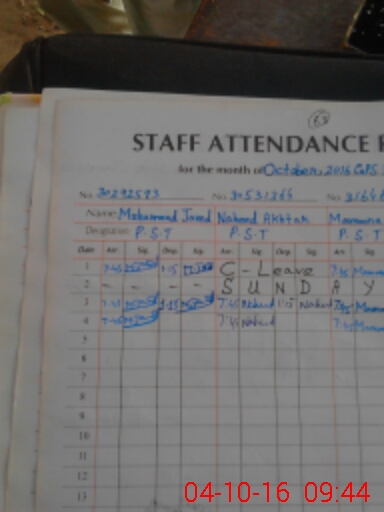 63
STAFF ATTENDANCE
for the month of October, 2016 GPS
No. 30292593 No. 30531264 No. 31646
Name: Mohammad Javed Naheed Akhtar
Designation: P.S.T P.S.T P.S.T
Date Arr. Sig. Dep. Sig. Arr. Sig. Dep. Sig. Arr. Sig.
1 7:45 1:15 C - Leave 7:45
2 - - - - S U N D A Y
3 7:45 1:15 7:45 Naheed 1:15 Naheed 7:45
4 7:45 7:45 Naheed 7:45
5
6
7
8
9
10
11
12
13
04-10-16 09:44